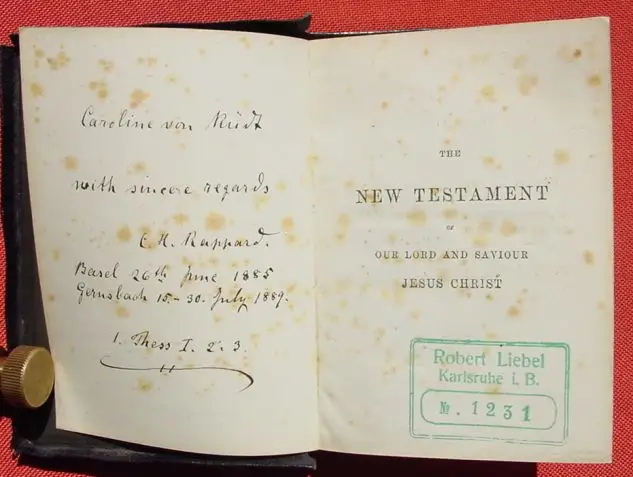 Caroline von Rüdt
with sincere regards
C. H. Rappard.
Basel 26th June 1885
Gernsbach 15.- 30. July 1889.
1. Thess I. 2. 3.
THE
NEW TESTAMENT
OF
OUR LORD AND SAVIOUR
JESUS CHRIST
Robert Liebel
Karlsruhe i. B.
№. 1231